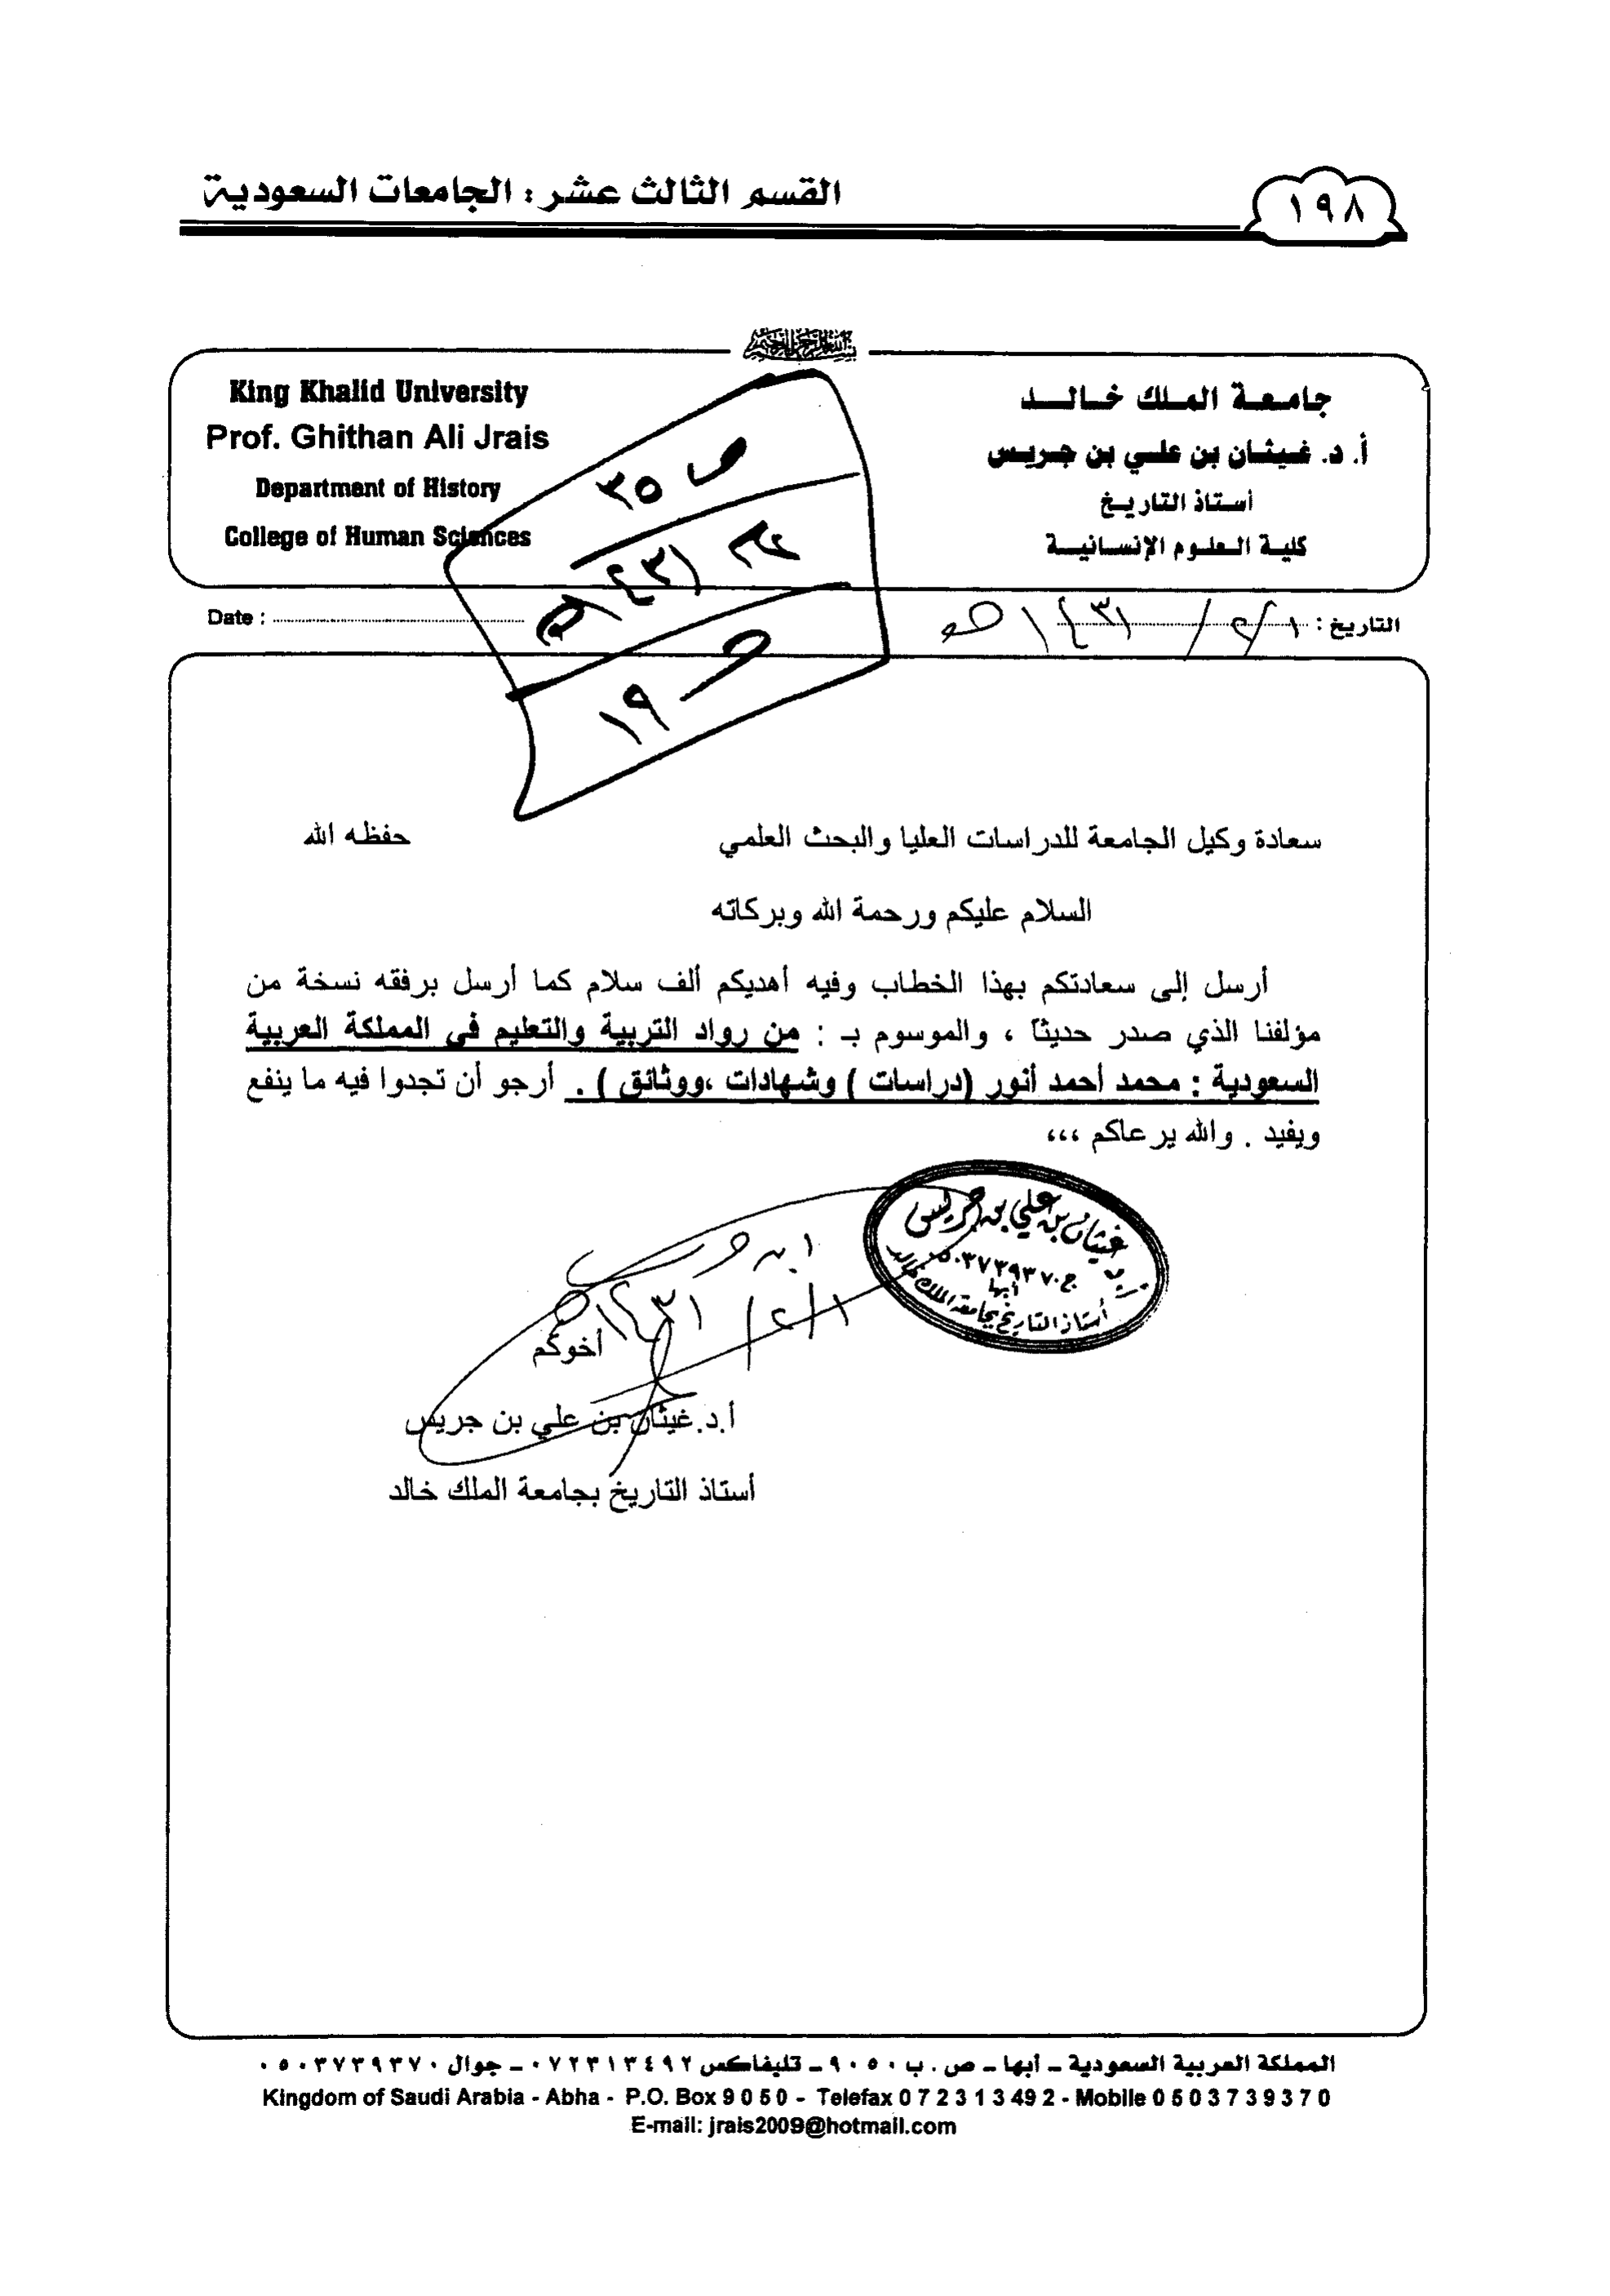 القسم الثالث عشر : الجامعات السعودية
١٩٨
بسم الله الرحمن الرحيم
جامعة الملك خالد
أ. د. غيثان بن علي بن جريس
أستاذ التاريخ
كلية العلوم الإنسانية
King Khalid University
Prof. Ghithan Ali Jrais
Department of History
College of Human Sciences
ص ٣٥
١٤٣١هـ
١٩
التاريخ : ١/٢/١٤٣١هـ
Date :
سعادة وكيل الجامعة للدراسات العليا والبحث العلمي حفظه الله
السلام عليكم ورحمة الله وبركاته
أرسل إلى سعادتكم بهذا الخطاب وفيه أهديكم ألف سلام كما أرسل برفقه نسخة من
مؤلفنا الذي صدر حديثاً ، والموسوم بـ : من رواد التربية والتعليم في المملكة العربية
السعودية : محمد أحمد أنور (دراسات ) وشهادات ،ووثائق ) . أرجو أن تجدوا فيه ما ينفع
ويفيد . والله يرعاكم ،،،
غيثان بن علي بن جريس
ج ٠٥٠٣٧٣٩٣٧٠
أبها
أستاذ التاريخ بجامعة الملك خالد
١/٢/١٤٣١هـ
أخوكم
أ.د.غيثان بن علي بن جريس
أستاذ التاريخ بجامعة الملك خالد
المملكة العربية السعودية – أبها – ص . ب ٩٠٥٠ – تليفاكس ٠٧٢٣١٣٤٩٢ – جوال ٠٥٠٣٧٣٩٣٧٠
Kingdom of Saudi Arabia - Abha - P.O. Box 9 0 5 0 - Telefax 0 7 2 3 1 3 49 2 - Mobile 0 5 0 3 7 3 9 3 7 0
E-mail: jrais2009@hotmail.com